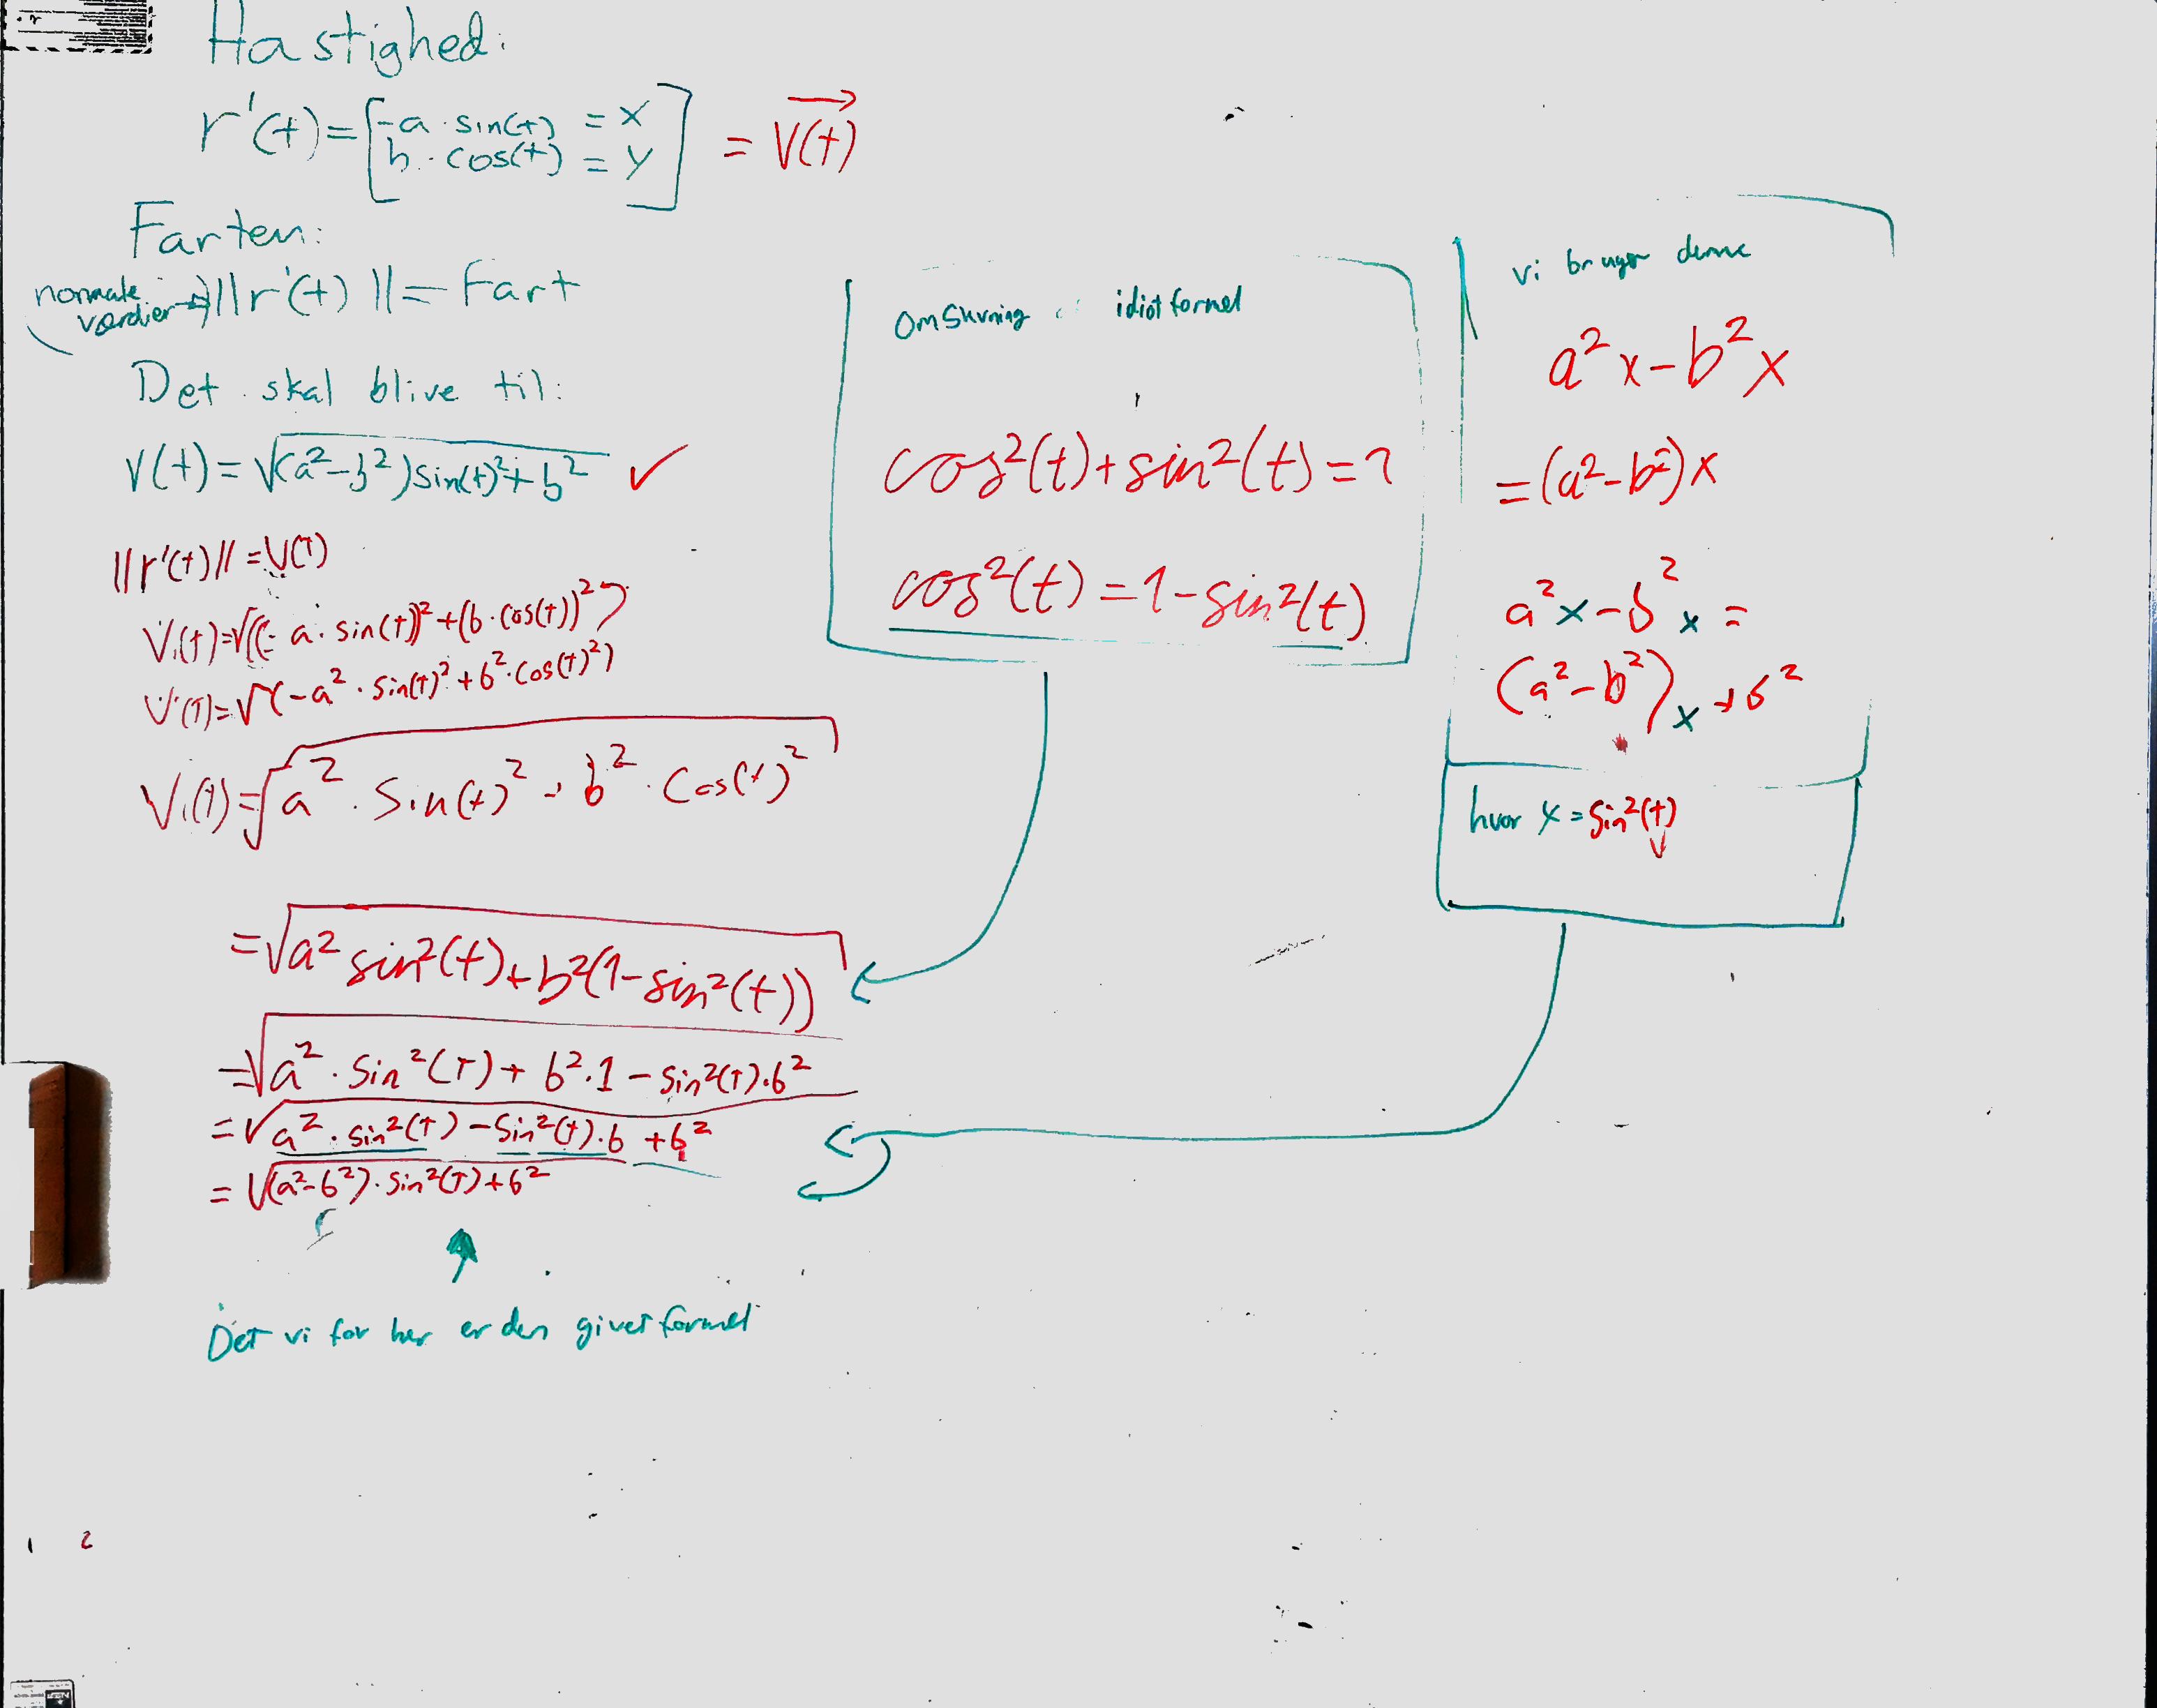 Hastighed:
r'(t) = [-a · sin(t) = x
b · cos(t) = y] = V(t)
Farten:
normale værdier → ||r'(t)|| = Fart
Det skal blive til:
V(t) = √(a²-b²)sin(t)²+b² ✓
||r'(t)|| = V(t)
V(t)=√((-a·sin(t))²+(b·cos(t))²)
V(t)=√(-a²·sin(t)²+b²·cos(t)²)
V(t)=√a²·sin(t)²+b²·cos(t)²
=√a² sin²(t)+b²(1-sin²(t))
=√a²·sin²(t)+b²·1-sin²(t)·b²
=√a²·sin²(t)-sin²(t)·b+b²
=√(a²-b²)·sin²(t)+b²
Det vi for her er den givet formel
idiotformel
cos²(t)+sin²(t)=1
cos²(t)=1-sin²(t)
vi bruger denne
a²x-b²x
=(a²-b²)x
a²x-b²x=
(a²-b²)x+b²
hvor x=sin²(t)
1 2